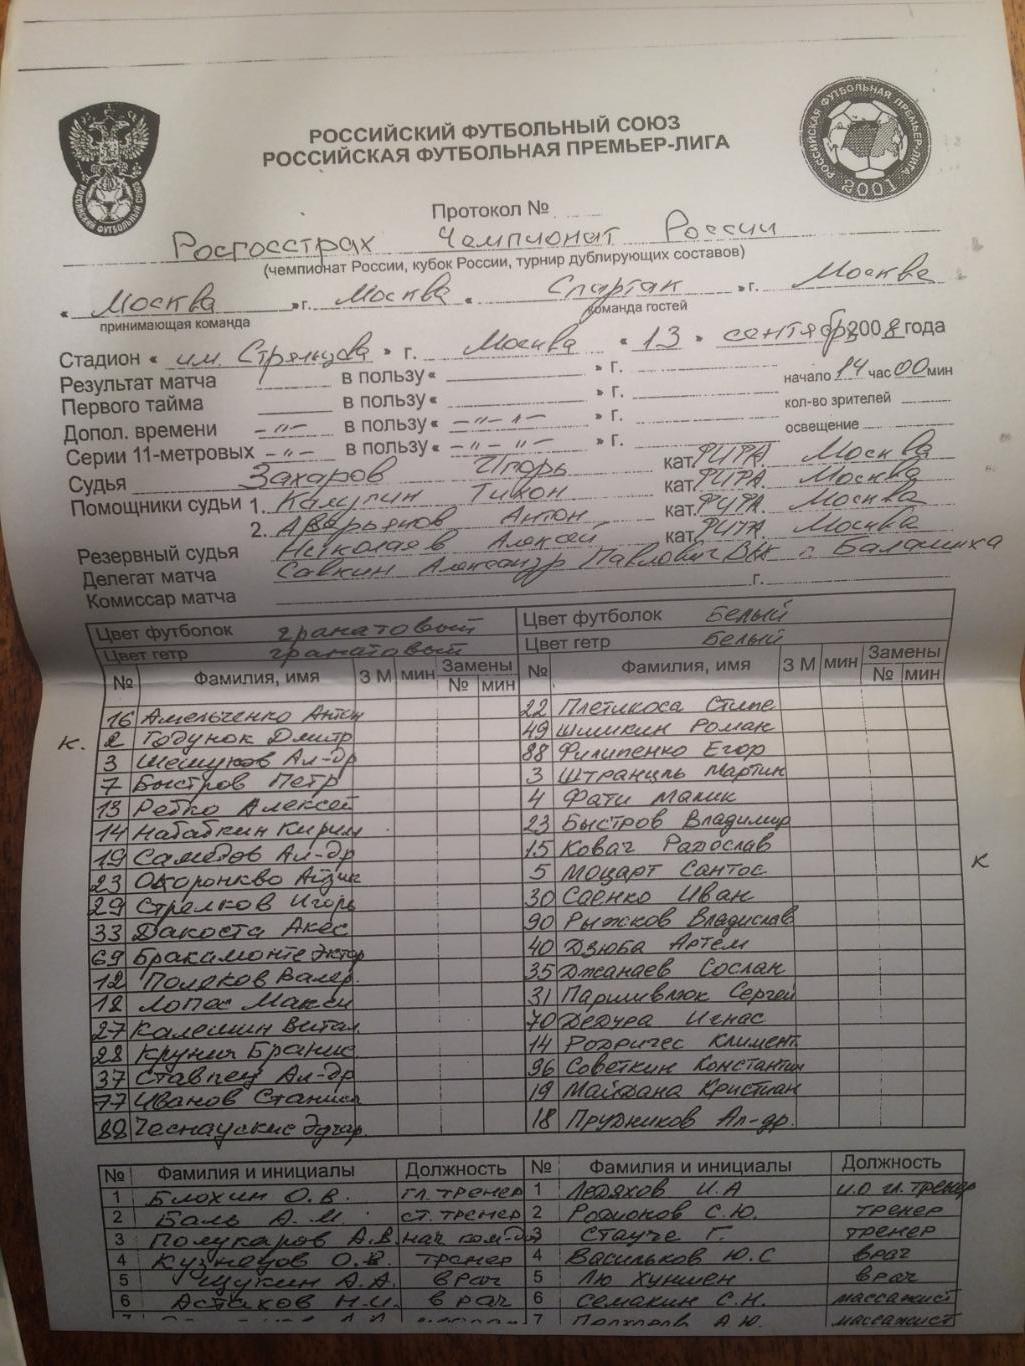 РОССИЙСКИЙ ФУТБОЛЬНЫЙ СОЮЗ
РОССИЙСКАЯ ФУТБОЛЬНАЯ ПРЕМЬЕР-ЛИГА
РОССИЙСКАЯ ФУТБОЛЬНАЯ ПРЕМЬЕР-ЛИГА
2001
Протокол №
Росгосстрах Чемпионат России
(чемпионат России, кубок России, турнир дублирующих составов)
« Москва » г. Москва « Спартак » г. Москва
принимающая команда команда гостей
Стадион « им. Стрельцова » г. Москва « 13 » сентябр 2008 года
Результат матча в пользу « » г. начало 14 час 00 мин
Первого тайма в пользу « » г. кол-во зрителей
Допол. времени -"- в пользу « -"-"- » г. освещение
Серии 11-метровых -"- в пользу « -"-"- » г.
Судья Захаров Игорь кат. Москва
Помощники судьи 1. Калугин Тихон кат. Москва
2. Аверьянов Антон кат. Москва
Резервный судья Николаев Алексей кат. Москва
Делегат матча Савкин Александр Павлович г. Балашиха
Комиссар матча г.
Цвет футболок гранатовый Цвет футболок Белый
Цвет гетр гранатовый Цвет гетр Белый
№ Фамилия, имя З М мин Замены № мин № Фамилия, имя З М мин Замены № мин
16 Амельченко Антон 22 Плетикоса Стипе
к. 2 Годунок Дмитр 49 Шишкин Роман
3 Шешуков Ал-др 88 Филипенко Егор
7 Быстров Петр 3 Штранцль Мартин
13 Ребко Алексей 4 Фати Малик
14 Набабкин Кирилл 23 Быстров Владимир
19 Самедов Ал-др 15 Ковач Радослав
23 Окоронкво Айзик 5 Моцарт Сантос К
29 Стрелков Игорь 30 Саенко Иван
33 Дакоста Акес 90 Рыжков Владислав
69 Бракамонте Эктор 40 Дзюба Артем
12 Поляков Валер. 35 Джанаев Сослан
18 Лопес Макси 31 Паршивлюк Сергей
27 Калешин Витал 70 Дедура Игнас
28 Крунич Бранис 14 Родригес Климент
37 Ставпец Ал-др 96 Советкин Константин
77 Иванов Станисл 19 Майдана Кристиан
88 Чеснаускис Эдгар. 18 Прудников Ал-др.
№ Фамилия и инициалы Должность № Фамилия и инициалы Должность
1 Блохин О.В. гл. тренер 1 Ледяхов И.А и.о гл. тренер
2 Баль А.М. ст. тренер 2 Родионов С.Ю. тренер
3 Полукаров А.В. нач ком-ды 3 Стауче Г. тренер
4 Кузнецов О.В. тренер 4 Васильков Ю.С врач
5 Щукин А.А. врач 5 Лю Хуншен врач
6 Астахов Н.И. врач 6 Семакин С.Н. массажист
7 А.Ю. массажист